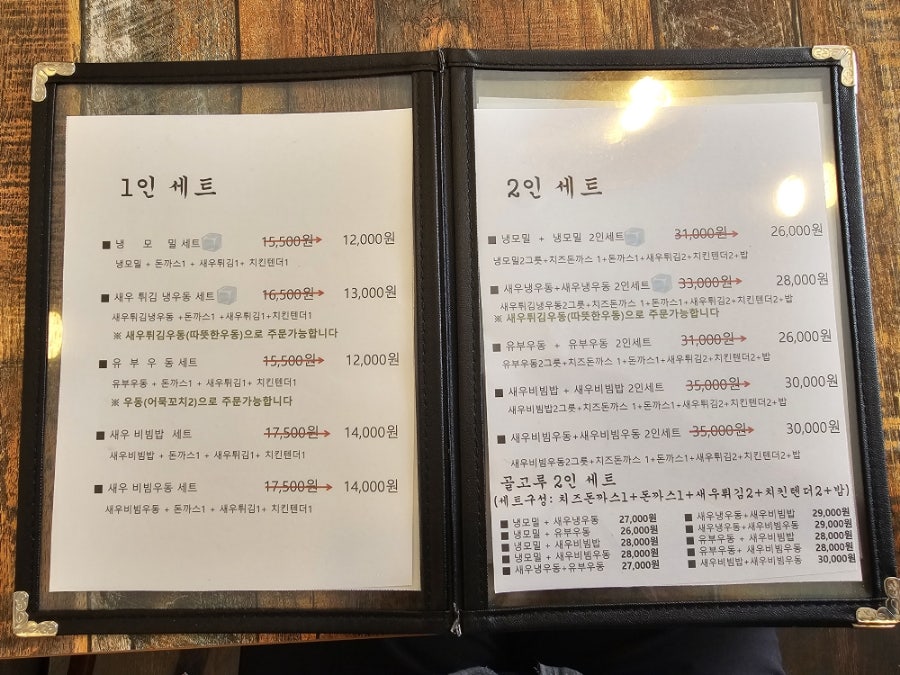 1인 세트
■ 냉 모 밀 세트 15,500원→ 12,000원
냉모밀 + 돈까스1 + 새우튀김1+ 치킨텐더1
■ 새우 튀김 냉우동 세트 16,500원→ 13,000원
새우튀김냉우동 +돈까스1 +새우튀김1+치킨텐더1
※ 새우튀김우동(따뜻한우동)으로 주문가능합니다
■ 유 부 우 동 세트 15,500원→ 12,000원
유부우동 + 돈까스1 + 새우튀김1+ 치킨텐더1
※ 우동(어묵꼬치2)으로 주문가능합니다
■ 새우 비빔밥 세트 17,500원→ 14,000원
새우비빔밥 + 돈까스1 + 새우튀김1+ 치킨텐더1
■ 새우 비빔우동 세트 17,500원→ 14,000원
새우비빔우동 + 돈까스1 + 새우튀김1+ 치킨텐더1
2인 세트
■ 냉모밀 + 냉모밀 2인세트 31,000원→ 26,000원
냉모밀2그릇+치즈돈까스 1+돈까스1+새우튀김2+치킨텐더2+밥
■ 새우냉우동+새우냉우동 2인세트 33,000원→ 28,000원
새우튀김냉우동2그릇+치즈돈까스 1+돈까스1+새우튀김2+치킨텐더2+밥
※ 새우튀김우동(따뜻한우동)으로 주문가능합니다
■ 유부우동 + 유부우동 2인세트 31,000원→ 26,000원
유부우동2그릇+치즈돈까스 1+돈까스1+새우튀김2+치킨텐더2+밥
■ 새우비빔밥 + 새우비빔밥 2인세트 35,000원→ 30,000원
새우비빔밥2그릇+치즈돈까스 1+돈까스1+새우튀김2+치킨텐더2+밥
■ 새우비빔우동+새우비빔우동 2인세트 35,000원→ 30,000원
새우비빔우동2그릇+치즈돈까스 1+돈까스1+새우튀김2+치킨텐더2+밥
골고루 2인 세트
(세트구성: 치즈돈까스1+돈까스1+새우튀김2+치킨텐더2+밥)
■ 냉모밀 + 새우냉우동 27,000원
■ 냉모밀 + 유부우동 26,000원
■ 냉모밀 + 새우비빔밥 28,000원
■ 냉모밀 + 새우비빔우동 28,000원
■ 새우냉우동+유부우동 27,000원
■ 새우냉우동+새우비빔밥 29,000원
■ 새우냉우동+새우비빔우동 29,000원
■ 유부우동 + 새우비빔밥 28,000원
■ 유부우동+ 새우비빔우동 28,000원
■ 새우비빔밥+새우비빔우동 30,000원